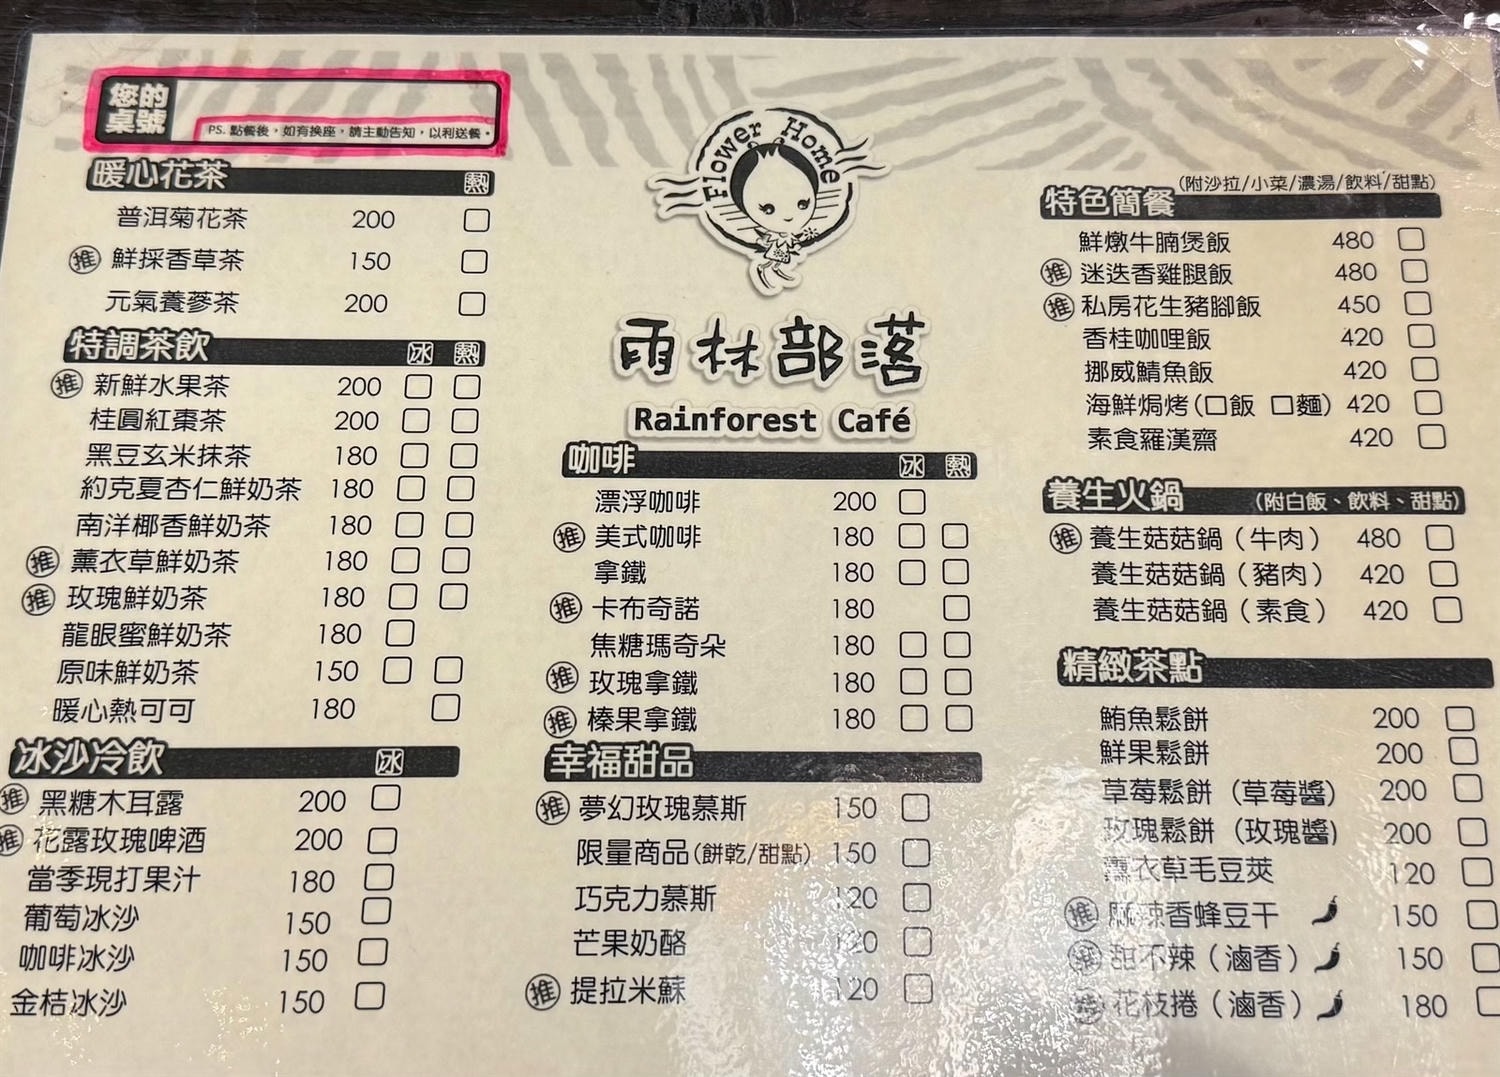 您的
桌號
PS. 點餐後，如有換座，請主動告知，以利送餐。
暖心花茶 熱
普洱菊花茶 200
推 鮮採香草茶 150
元氣養蔘茶 200
特調茶飲 冰 熱
推 新鮮水果茶 200
桂圓紅棗茶 200
黑豆玄米抹茶 180
約克夏杏仁鮮奶茶 180
南洋椰香鮮奶茶 180
推 薰衣草鮮奶茶 180
推 玫瑰鮮奶茶 180
龍眼蜜鮮奶茶 180
原味鮮奶茶 150
暖心熱可可 180
冰沙冷飲 冰
推 黑糖木耳露 200
推 花露玫瑰啤酒 200
當季現打果汁 180
葡萄冰沙 150
咖啡冰沙 150
金桔冰沙 150
Flower Home
雨林部落
Rainforest Café
咖啡 冰 熱
漂浮咖啡 200
推 美式咖啡 180
拿鐵 180
推 卡布奇諾 180
焦糖瑪奇朵 180
推 玫瑰拿鐵 180
推 榛果拿鐵 180
幸福甜品
推 夢幻玫瑰慕斯 150
限量商品(餅乾/甜點) 150
巧克力慕斯 120
芒果奶酪 120
推 提拉米蘇 120
(附沙拉/小菜/濃湯/飲料/甜點)
特色簡餐
鮮燉牛腩煲飯 480
推 迷迭香雞腿飯 480
推 私房花生豬腳飯 450
香桂咖哩飯 420
挪威鯖魚飯 420
海鮮焗烤(口飯 口麵) 420
素食羅漢齋 420
養生火鍋 (附白飯、飲料、甜點)
推 養生菇菇鍋(牛肉) 480
養生菇菇鍋(豬肉) 420
養生菇菇鍋(素食) 420
精緻茶點
鮪魚鬆餅 200
鮮果鬆餅 200
草莓鬆餅(草莓醬) 200
玫瑰鬆餅(玫瑰醬) 200
薰衣草毛豆莢 120
推 麻辣香蜂豆干 150
推 甜不辣(滷香) 150
推 花枝捲(滷香) 180